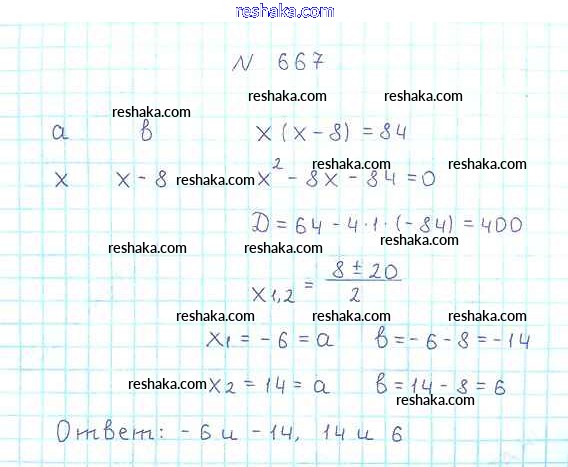 reshaka.com
N 667
reshaka.com reshaka.com
reshaka.com
a в x(x-8)=84
reshaka.com reshaka.com
x x-8 reshaka.com x² - 8x - 84 = 0
D = 64 - 4·1·(-84) = 400
reshaka.com reshaka.com reshaka.com
x1,2 = 8 ± 20 / 2
reshaka.com reshaka.com reshaka.com
x1 = -6 = a в = -6 - 8 = -14
reshaka.com x2 = 14 = a в = 14 - 8 = 6
reshaka.com
Ответ: -6 и -14, 14 и 6